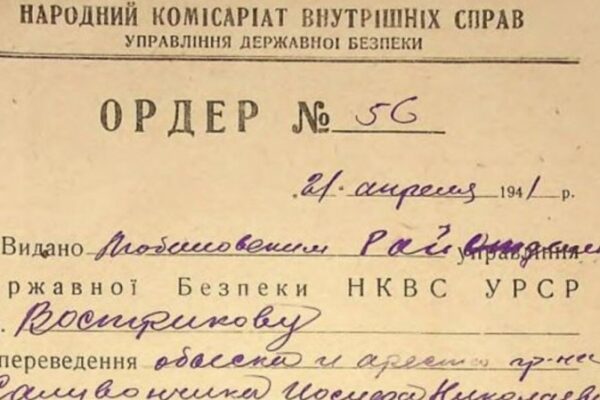 НАРОДНИЙ КОМІСАРІАТ ВНУТРІШНІХ СПРАВ
УПРАВЛІННЯ ДЕРЖАВНОЇ БЕЗПЕКИ
ОРДЕР № 56
21. апреля 1941 р.
Видано Любашовским Рай управління
ржавної Безпеки НКВС УРСР
Вострикову
переведення обыска и ареста гр-на
Саливончика Иосифа Николаев